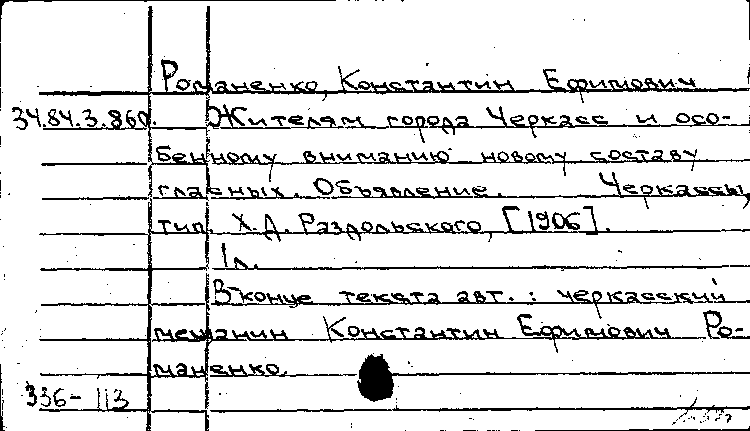 Романенко, Константин Ефимович
34.84.3.860. Жителям города Черкасс и осо-
бенному вниманию новому составу
гласных. Объявление. Черкассы,
тип. Х.Д. Раздольского, [1906].
1 л.
В конце текста авт.: черкасский
мещанин Константин Ефимович Ро-
маненко.
336-113